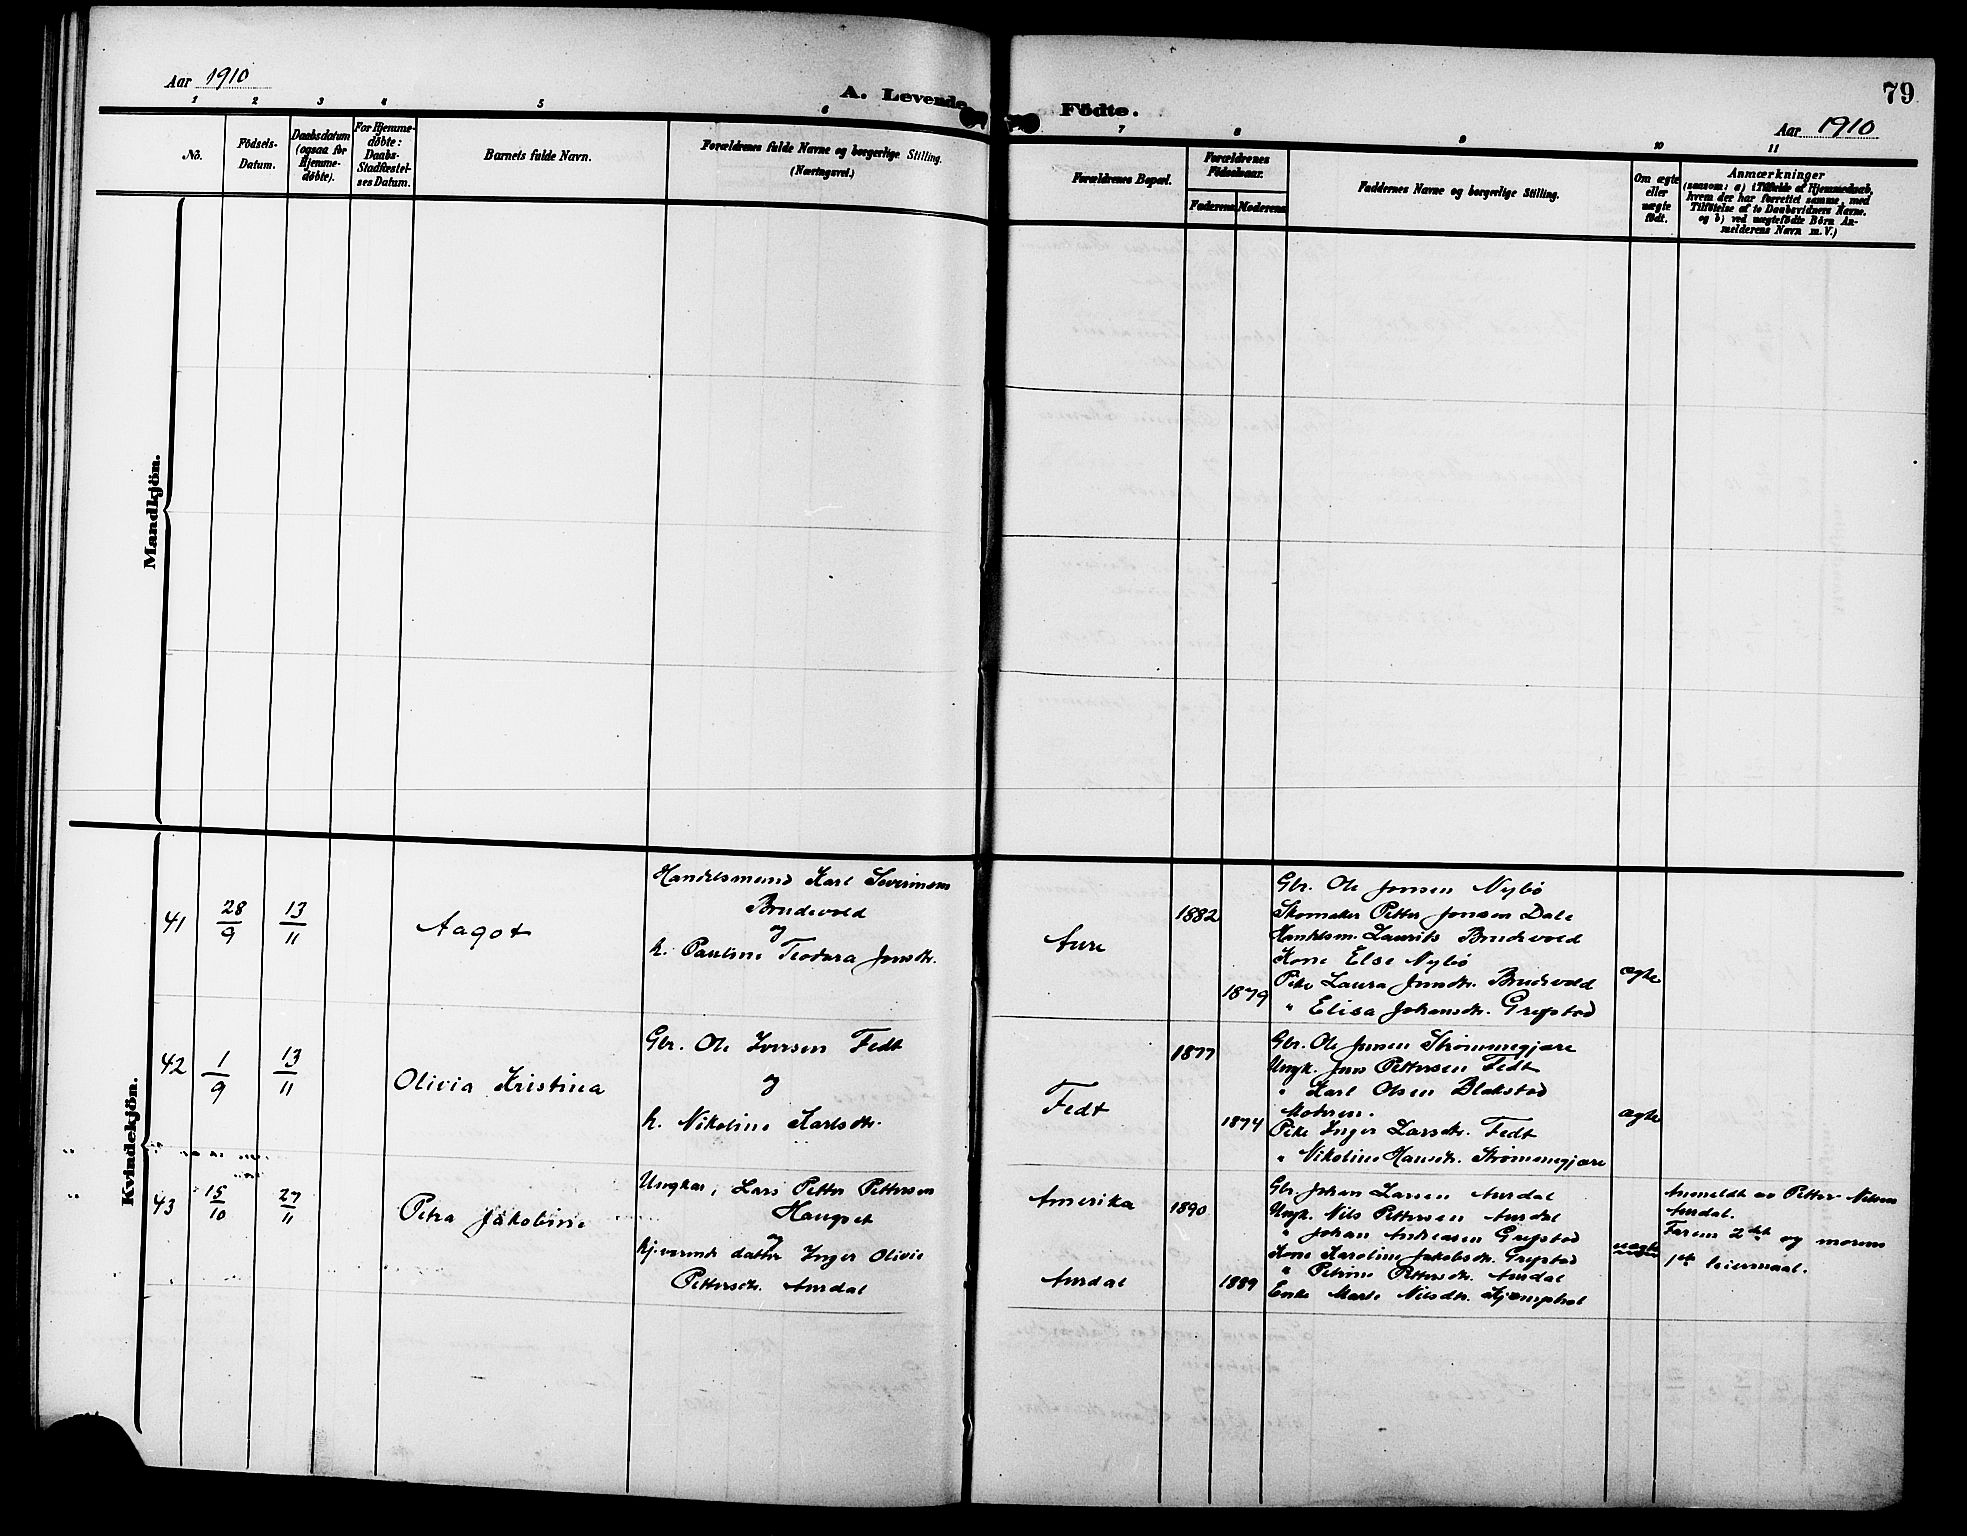 Aar 1910
A. Levende Födte.
79
Aar 1910
1 2 3 4 5 6 7 8 9 10 11
No.
Födsels-
Datum.
Daabsdatum
(ogsaa for
Hjemme-
døbte).
For Hjemme-
døbte:
Daabs-
Stadfæstel-
ses Datum.
Barnets fulde Navn.
Forældrenes fulde Navne og borgerlige Stilling.
(Næringsvei.)
Forældrenes Bopæl.
Forældrenes
Födselsaar.
Faderens
Moderens
Faddernes Navne og borgerlige Stilling.
Om ægte
eller
uægte
født.
Anmærkninger
(saasom: a) i Tilfælde af Hjemmedaab,
hvem der har forrettet samme, med
Tilføielse af to Daabsvidners Navne.
og b) ved uægtefödte Börn An-
melderens Navn m. V.)
Mandkjön.
Kvindekjön.
41
28/9
13/11
Aagot
Handelsmand Karl Severinsen
Brudevold
og
h. Pauline Teodora Jonsdtr.
Aure
1882
1879
Gbr. Ole Jonsen Nybø
Skomaker Petter Jonsen Dale
Handelsm. Laurits Brudevold
Kone Else Nybø
Pike Laura Jonsdtr. Brudevold
" Elisa Johansdtr. Grepstad
ægte
42
1/9
13/11
Olivia Kristina
Gbr. Ole Iversen Fedt
og
h. Nikoline Karlsdtr.
Fedt
1877
1874
Gbr. Ole Jensen Strømmegjære
Ungk. Jens Pettersen Fedt
" Karl Olsen Blakstad
Moderen.
Pike Inger Larsdtr. Fedt
" Nikoline Hansdtr. Strømmegjære
ægte
43
15/10
27/11
Petra Jakobine
Ungkar, Lars Petter Pettersen
Haugset
og
hj.værende datter Inger Olivie
Pettersdtr. Aurdal
Amerika
Aurdal
1890
1889
Gbr. Johan Larsen Aurdal
Ungk. Nils Pettersen Aurdal
" Johan Andreasen Grepstad
Kone Karoline Jakobsdtr. Grepstad
" Petrine Pettersdtr. Aurdal
Enke Marte Nilsdtr.
uægte
Anmeldt av Petter Nilsen
Aurdal.
Faren 2det og morens
1ste leiermaal.